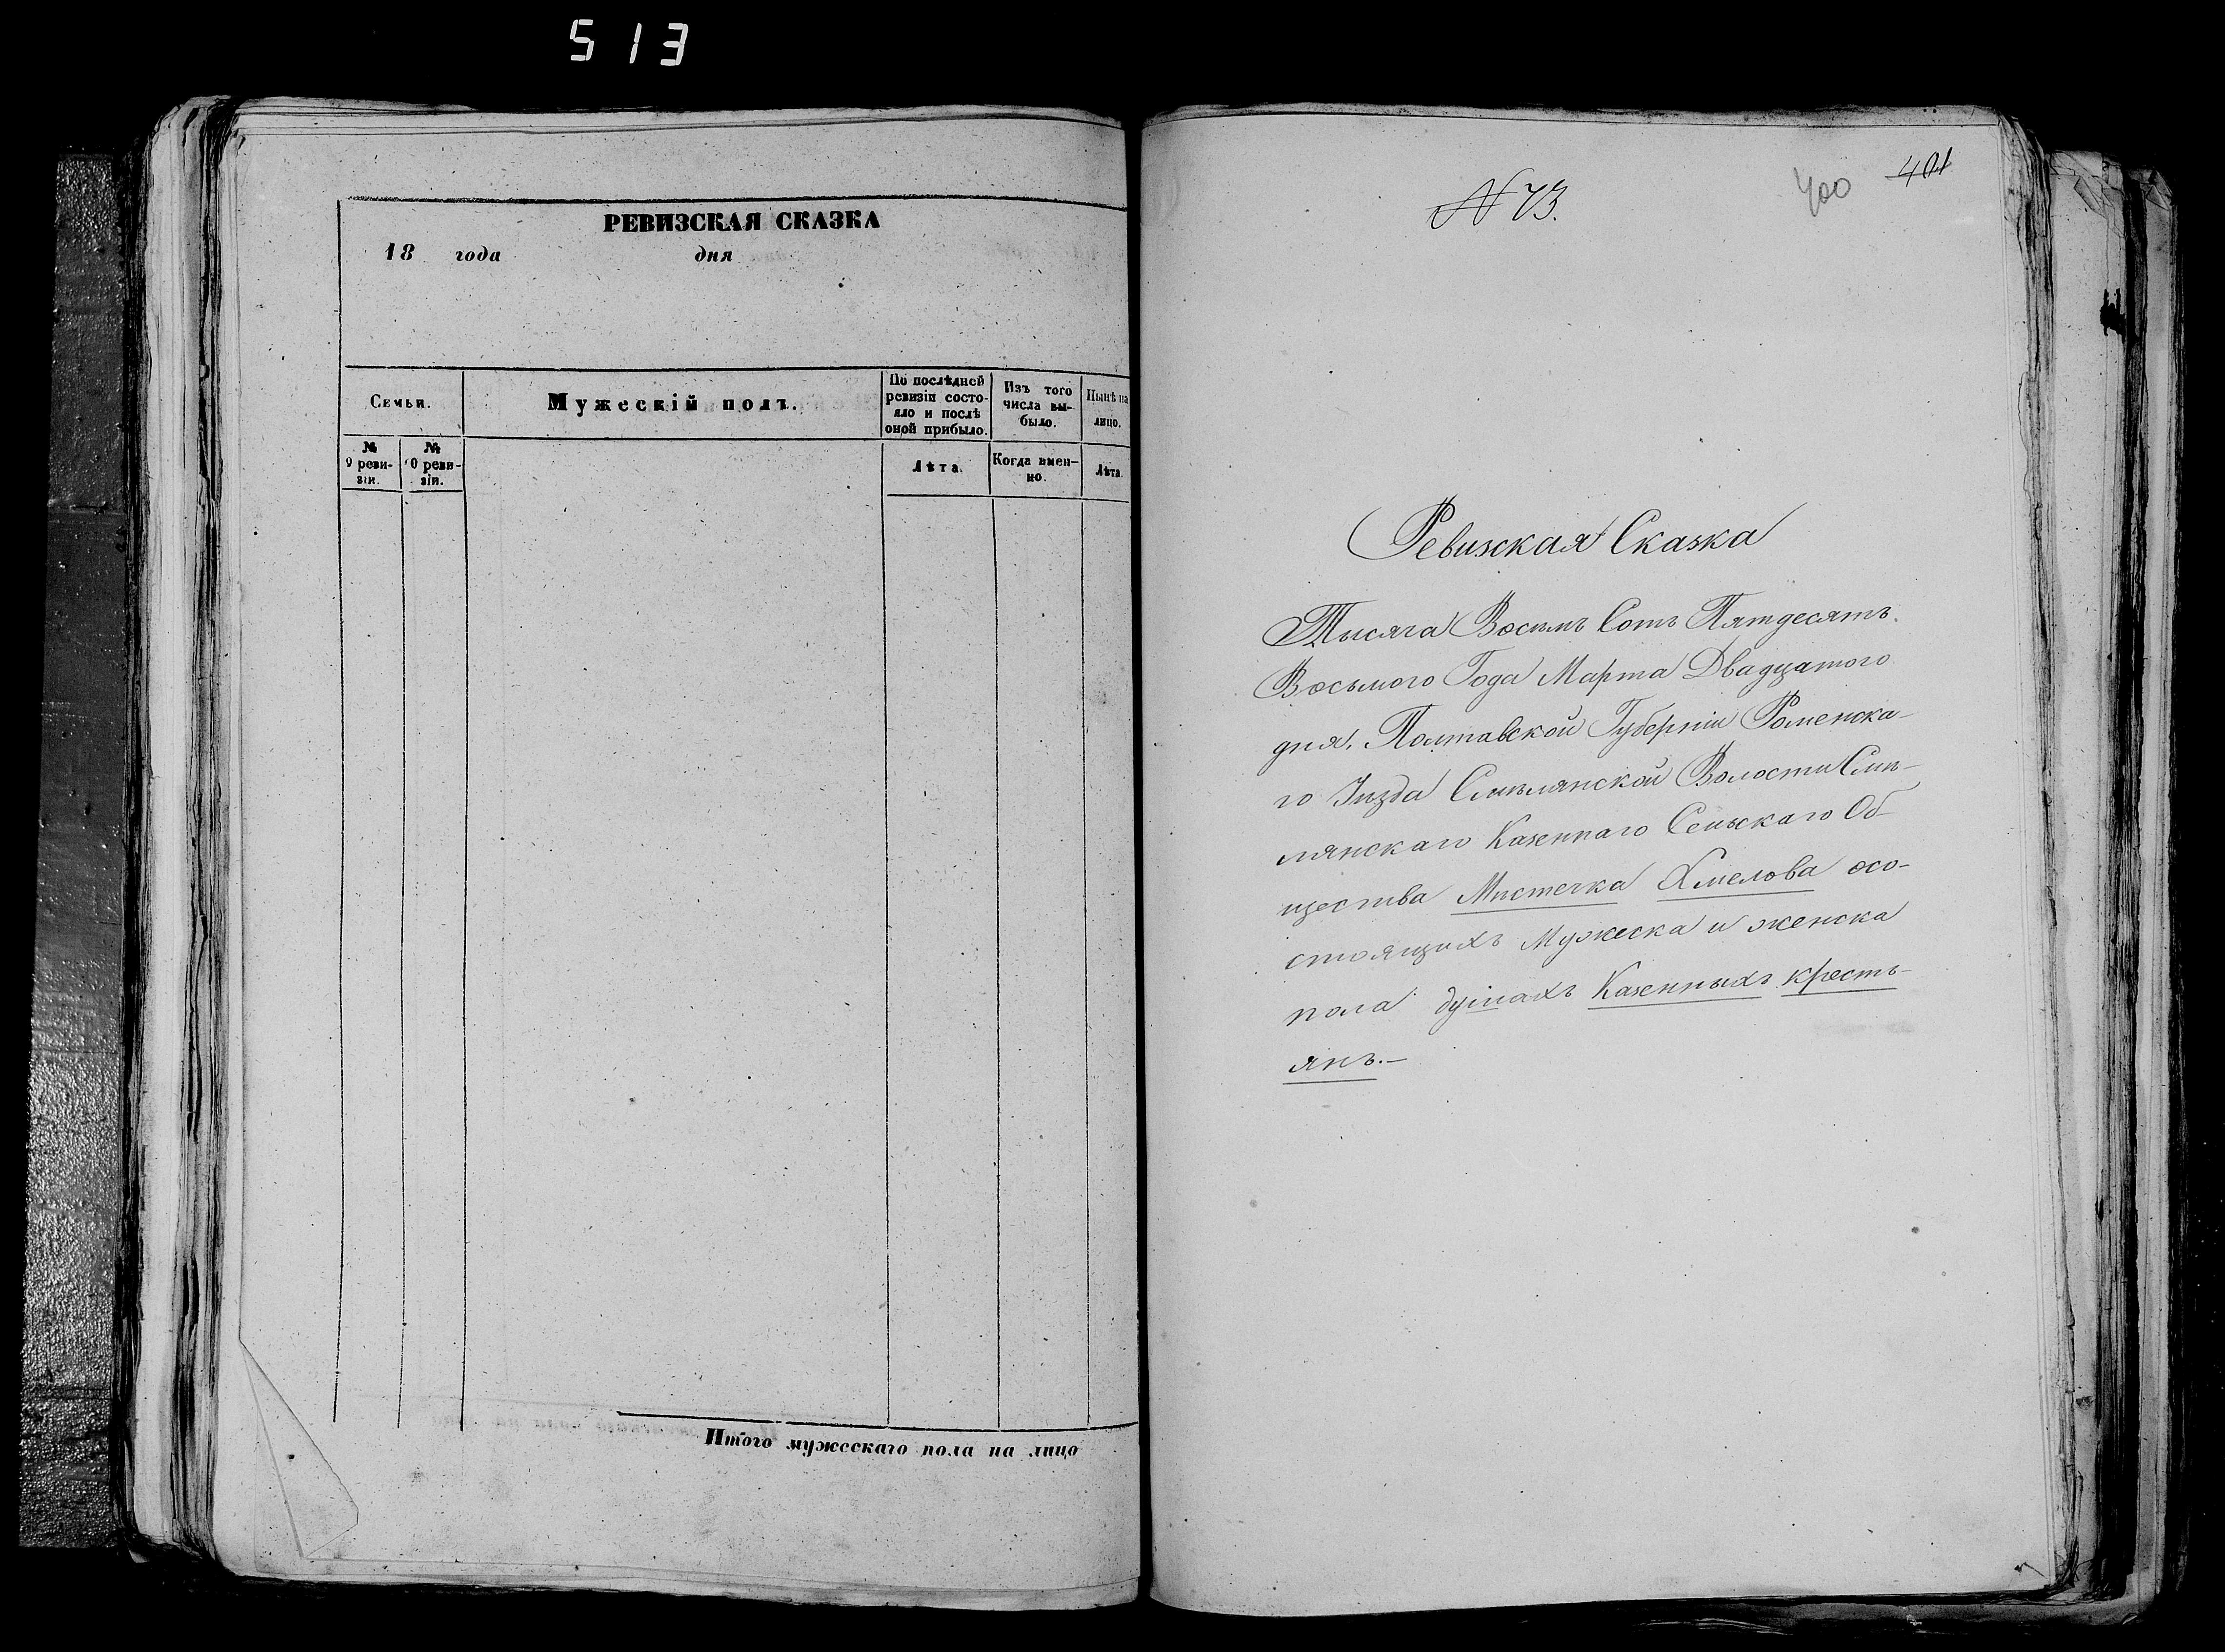 513
РЕВИЗСКАЯ СКАЗКА
18 года дня
Семьи.
Мужескій полъ.
По послѣдней
ревизіи состо-
яло и послѣ
оной прибыло.
Изъ того
числа вы-
было.
Нынѣ на
лицо.
№
9 реви-
зіи.
№
10 реви-
зіи.
Лѣта.
Когда имен-
но.
Лѣта.
Итого мужескаго пола на лицо
N 73.
400
401
Ревизская Сказка
Тысяча Восемь Сотъ Пятдесятъ.
Восьмого Года Марта Двадцатого
дня. Полтавской Губерніи Роменска-
го Уѣзда Смѣлянской Волости Смѣ-
лянскаго Казеннаго Сельскаго Об-
щества Мѣстечка Хмелова осо-
стоящихъ Мужеска и женска
пола душахъ Казенныхъ кресть-
янъ.—